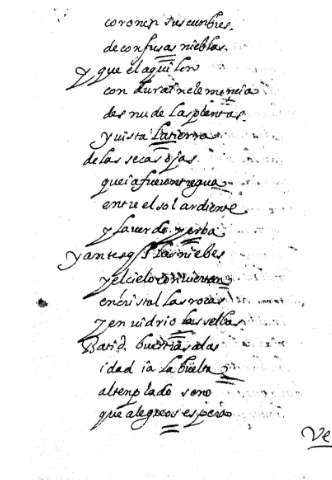 coronen sus cunbres
de confusas nieblas.
y que el aquilon
con dura inclemencia
desnude las plantas.
y vista la tierra
de las secas ojas
que ia fueron tregua
entre el sol ardiente
y la verde yerba
y antes q̃ las niebes
y el cielo conviertan
en cristal las rocas
y en vidrio las selbas
Batid. buestras alas
i dad ia la buelta
al tenplado seno
que alegre os espera
Ve